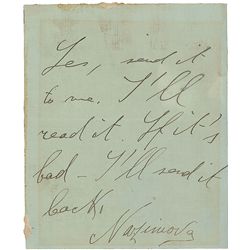 Yes, send it
to me. I'll
read it. If it's
bad - I'll send it
back.
Nazimova